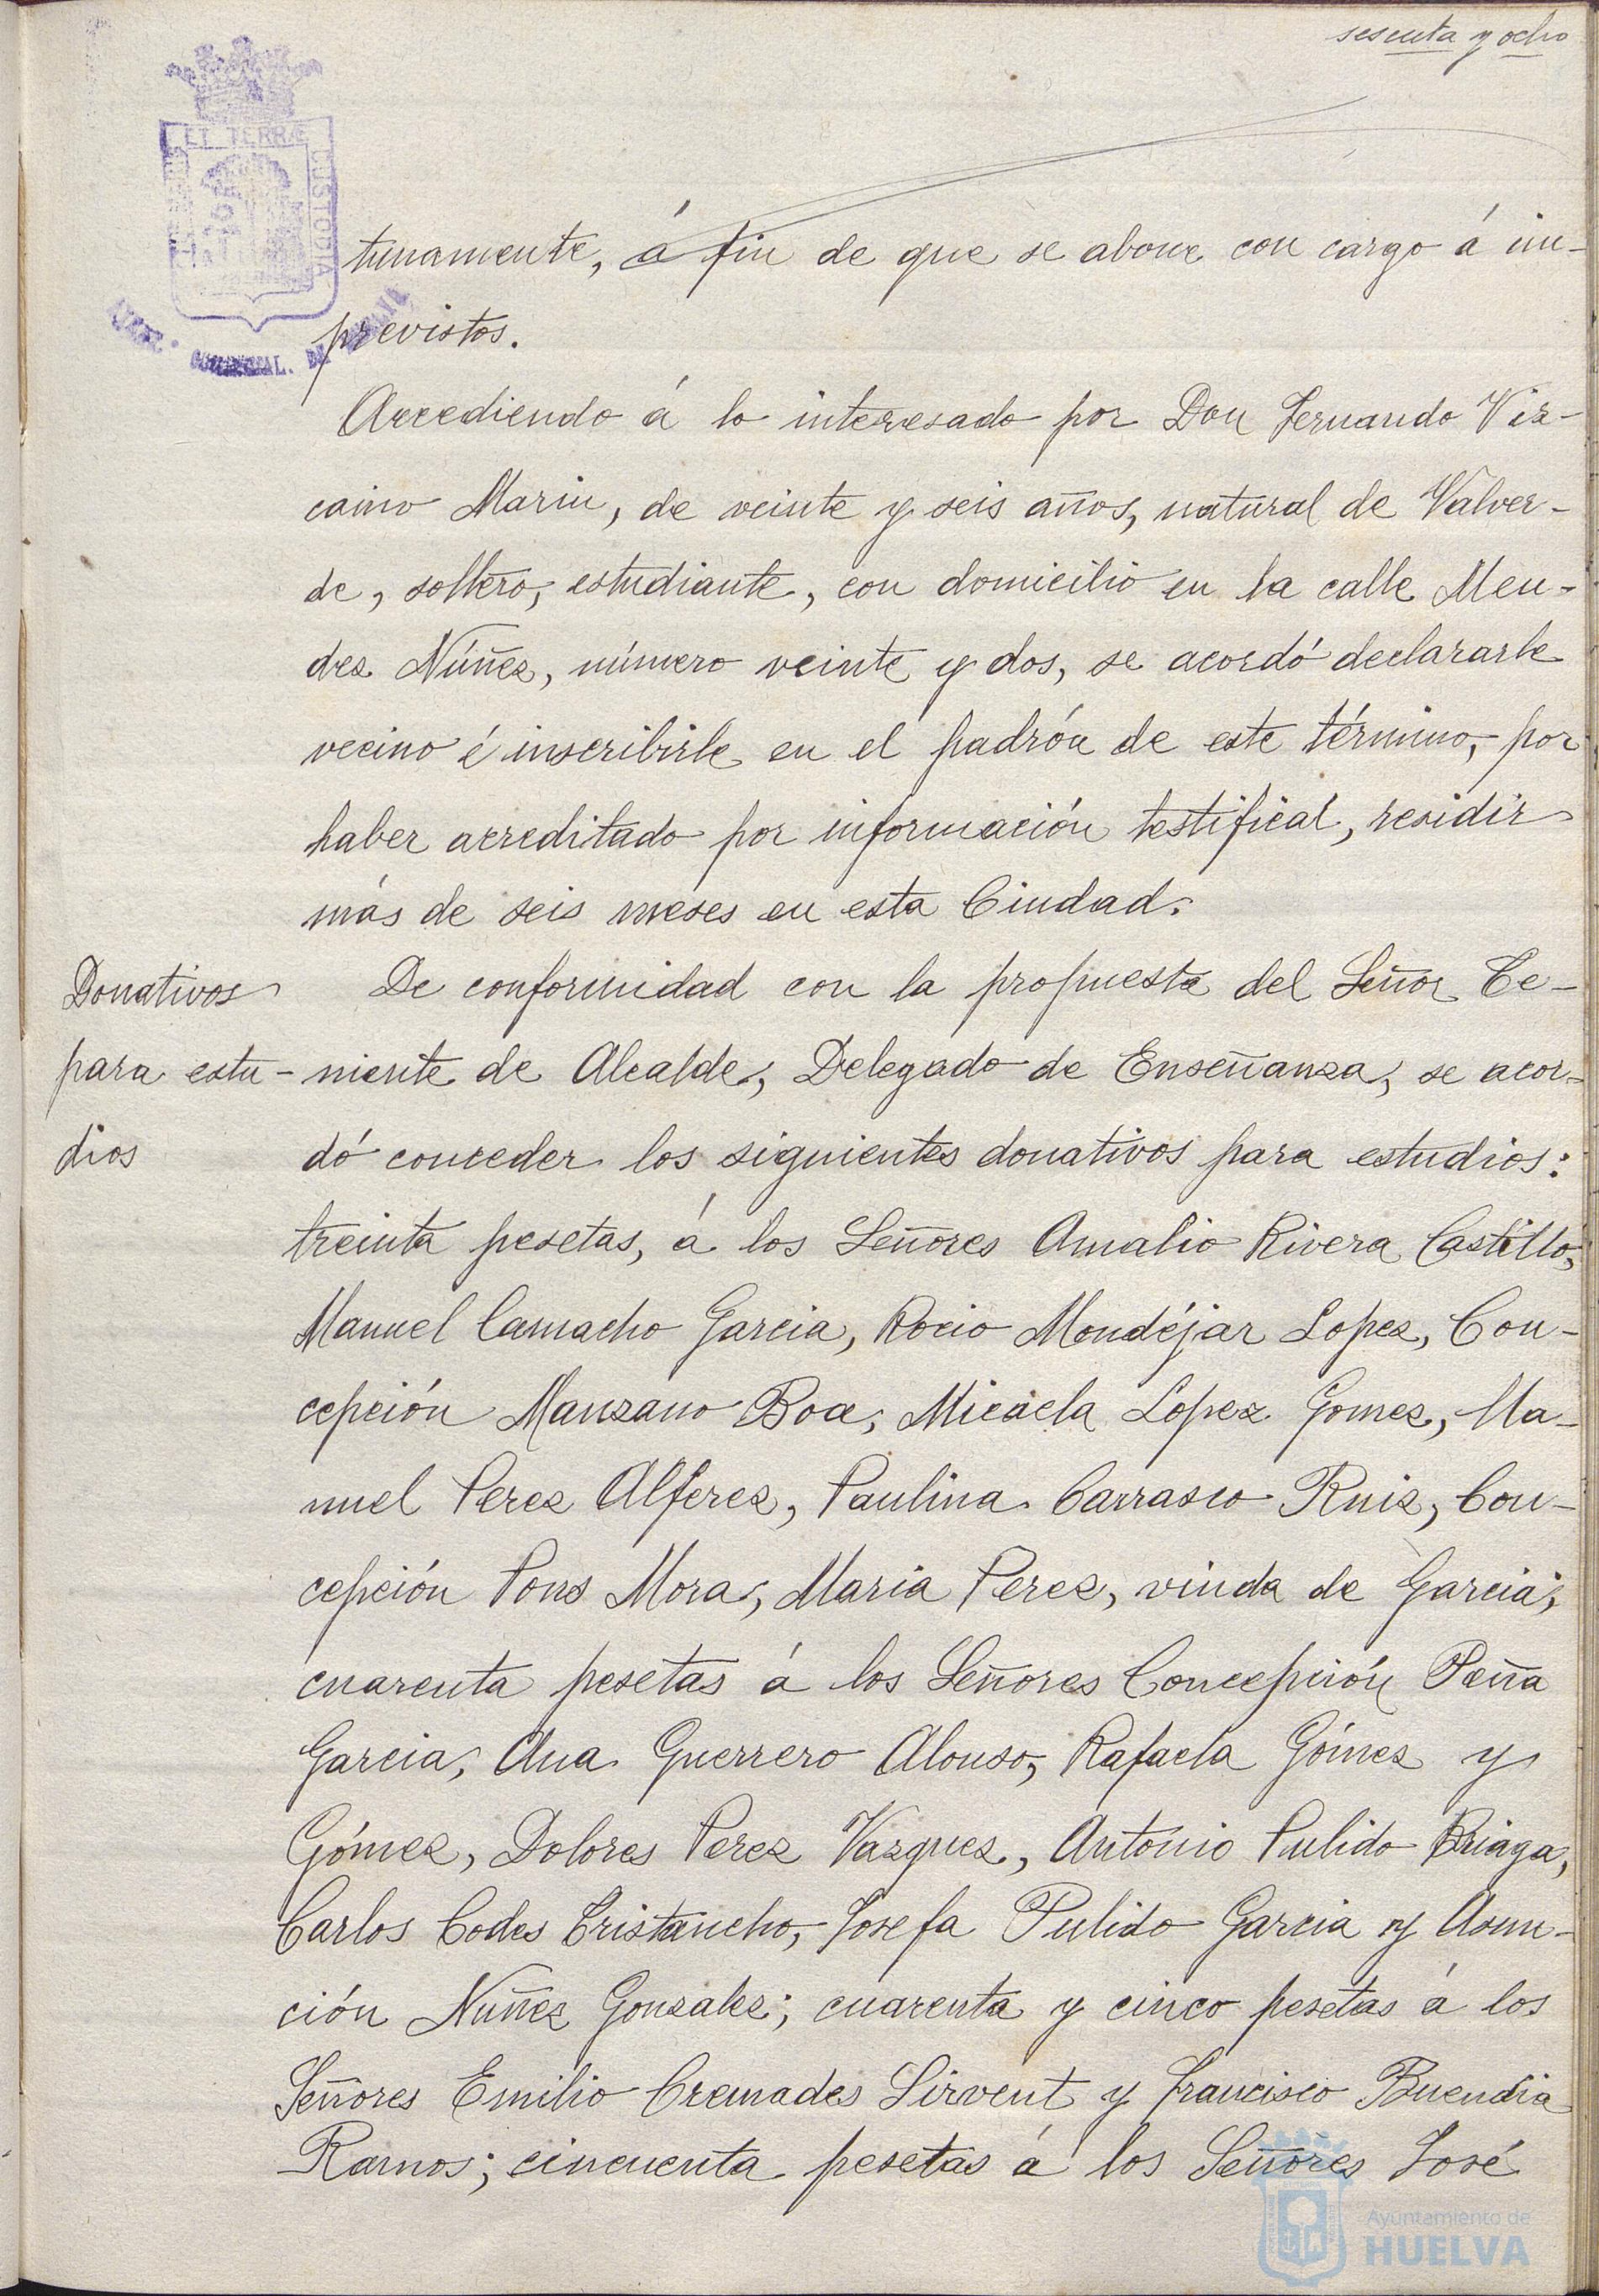 sesenta y ocho
ET TERRÆ
CUSTODIA
tunamente, á fin de que se abone con cargo á im-
previstos.
Accediendo á lo interesado por Don Fernando Viz-
caino Marin, de veinte y seis años, natural de Valver-
de, soltero, estudiante, con domicilio en la calle Men-
dez Núñez, número veinte y dos, se acordó declararle
vecino é inscribirle en el padrón de este término, por
haber acreditado por información testifical, residir
más de seis meses en esta Ciudad.
Donativos
para estu-
dios
De conformidad con la propuesta del Señor Te-
niente de Alcalde, Delegado de Enseñanza, se acor-
dó conceder los siguientes donativos para estudios:
treinta pesetas, á los Señores Amalio Rivera Castillo,
Manuel Camacho Garcia, Rocio Mondéjar Lopez, Con-
cepción Manzano Boa, Micaela López Gomez, Ma-
nuel Perez Alférez, Paulina Carrasco Ruiz, Con-
cepción Pons Mora, Maria Perez, viuda de Garcia;
cuarenta pesetas á los Señores Concepción Peña
Garcia, Ana Guerrero Alonso, Rafaela Gómez y
Gómez, Dolores Perez Vazquez, Antonio Pulido
Carlos Codes Cristancho, Josefa Pulido Garcia y Asun-
ción Nuñez Gonzalez; cuarenta y cinco pesetas á los
Señores Emilio Cremades Sirvent y Francisco Buendia
Ramos; cincuenta pesetas á los Señores José
Ayuntamiento de
HUELVA